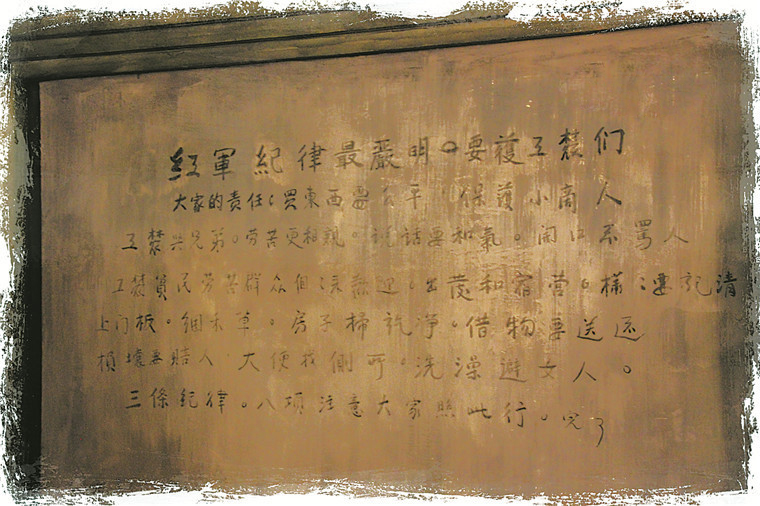 红軍紀律最嚴明。要護工農们
大家的责任：買東西要公平 保護小商人
工農共兄弟。劳苦更相親。说話要和氣。開口不罵人
工農貧民劳苦群众個：来歡迎。出發和宿营。樣：要記清
上门板。捆禾草。房子掃乾净。借物要送还
損壞要賠人 大便找側所。洗澡避女人。
三條紀律。八项注意大家照此行。完了